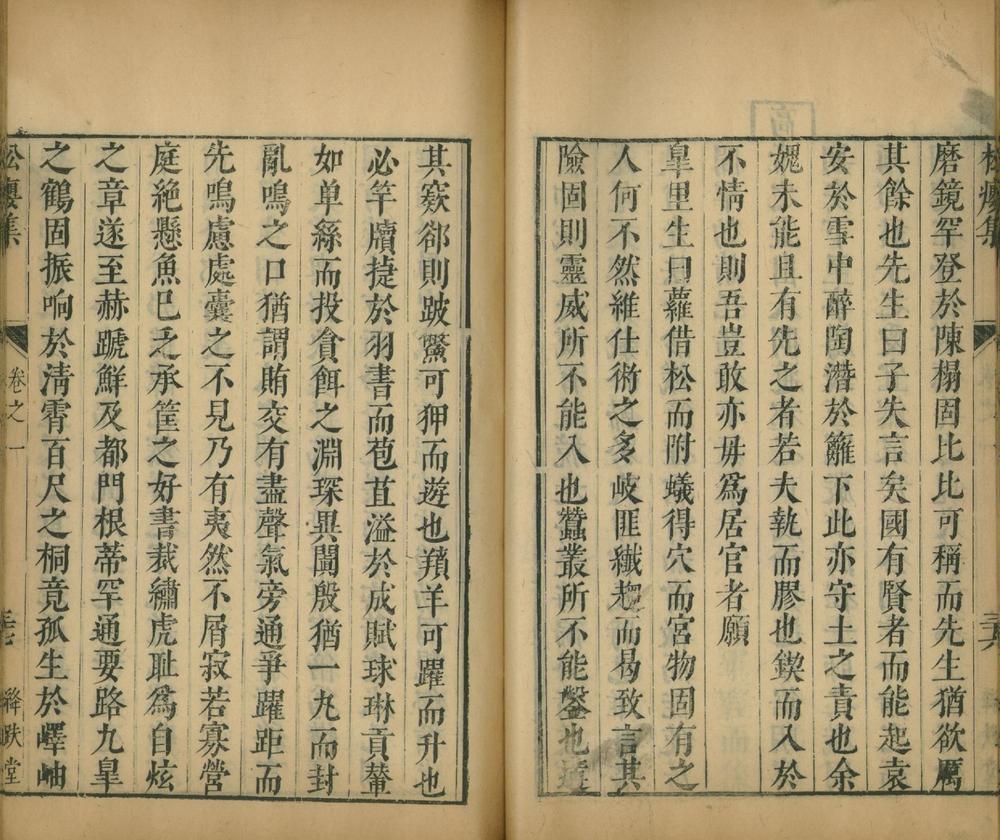 磨鏡罕登於陳榻固比比可稱而先生猶欲厲
其餘也先生曰子失言矣國有賢者而能起袁
安於雪中醉陶潛於籬下此亦守土之責也余
媿未能且有先之者若夫執而膠也鍥而入於
不情也則吾豈敢亦毋爲居官者願
皐里生曰蘿借松而附蟻得穴而宮物固有之
人何不然維仕術之多岐匪纖趨而曷致言其
險固則靈威所不能入也蠶叢所不能鑿也
其窾郤則跛鱉可狎而遊也羵羊可躍而升也
必竿牘捷於羽書而苞苴溢於成賦球琳貢輦
如單絲而投貪餌之淵琛異闐殷猶一丸而封
亂鳴之口猶謂賄交有盡聲氣旁通爭躍距而
先鳴慮處囊之不見乃有夷然不屑寂若寡營
庭絶懸魚巳乏承筐之好書裁繡虎耻爲自炫
之章遂至赫蹏鮮及都門根蒂罕通要路九皐
之鶴固振响於淸霄百尺之桐竟孤生於嶧岫
松癭集
卷之一